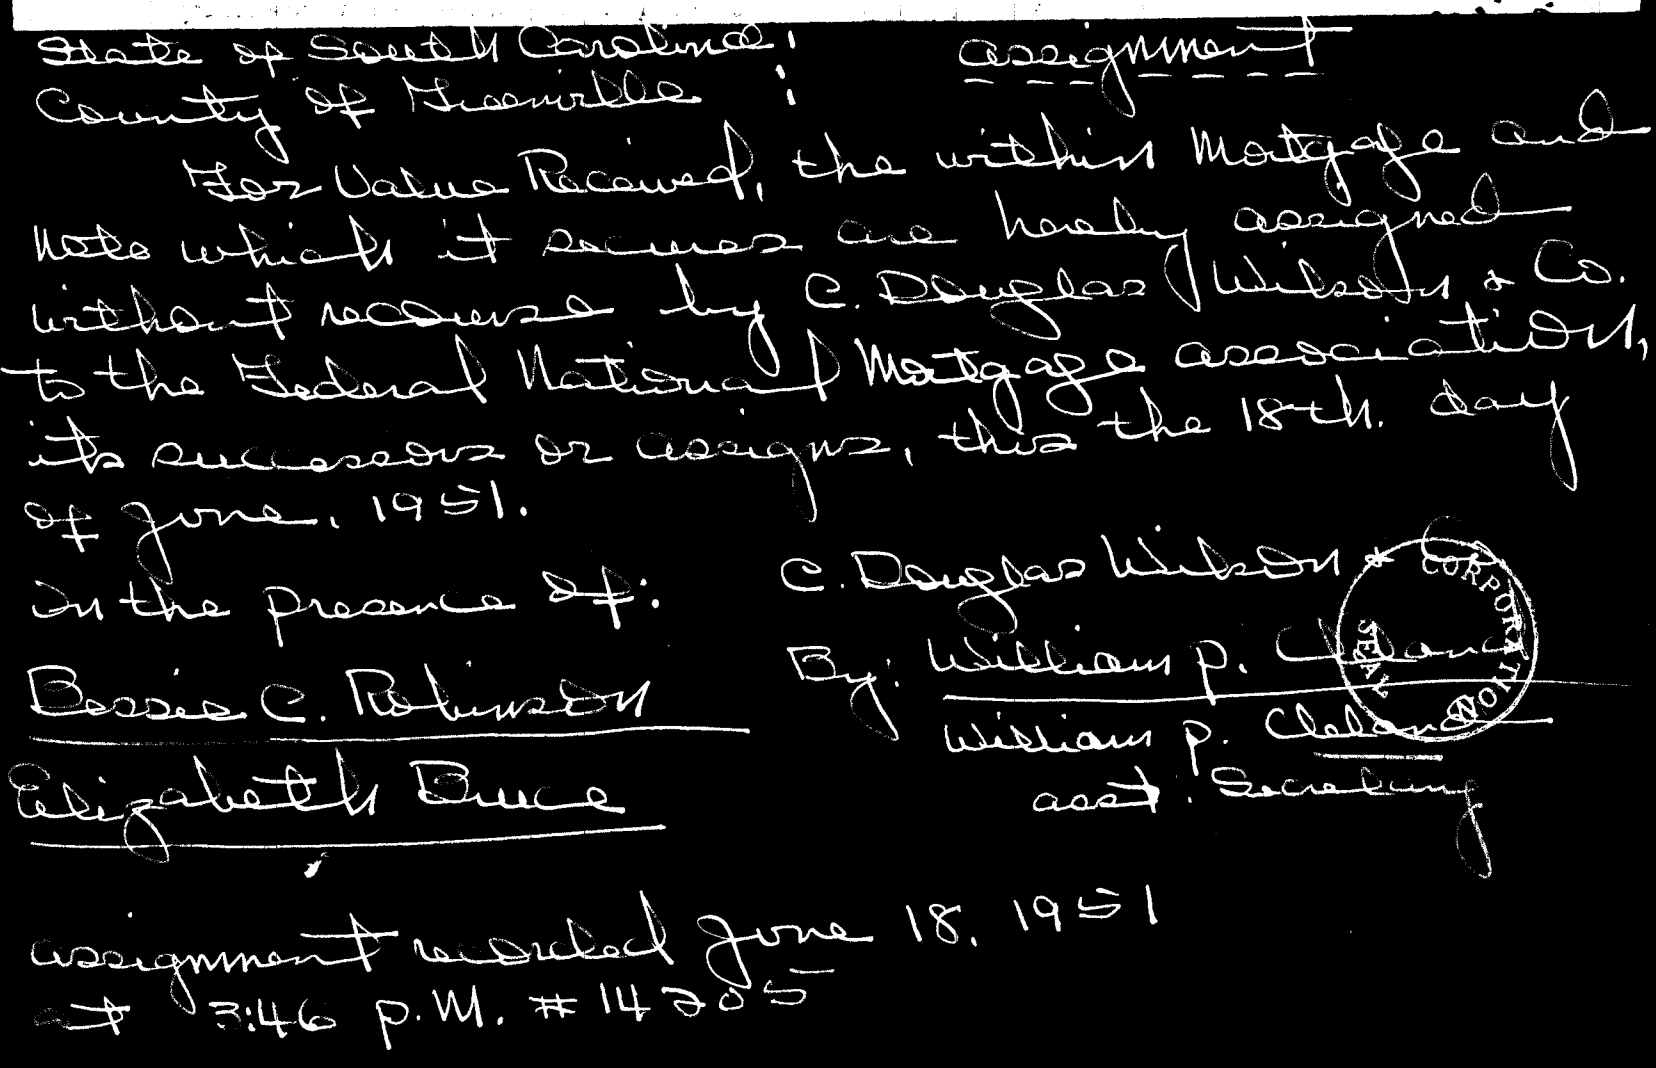 State of South Carolina:
assignment
County of Greenville :
For Value Received, the within Mortgage and
Note which it secures are hereby assigned
without recourse by C. Douglas Wilson & Co.
to the Federal National Mortgage association,
its successors or assigns, this the 18th. day
of June, 1951.
In the presence of:
C. Douglas Wilson & Co.
Bessie C. Robinson
By: William P. Cleland
Elizabeth Bruce
William P. Cleland
asst. Secretary
CORPORATION
SEAL
assignment recorded June 18, 1951
at 3:46 P.M. # 14205